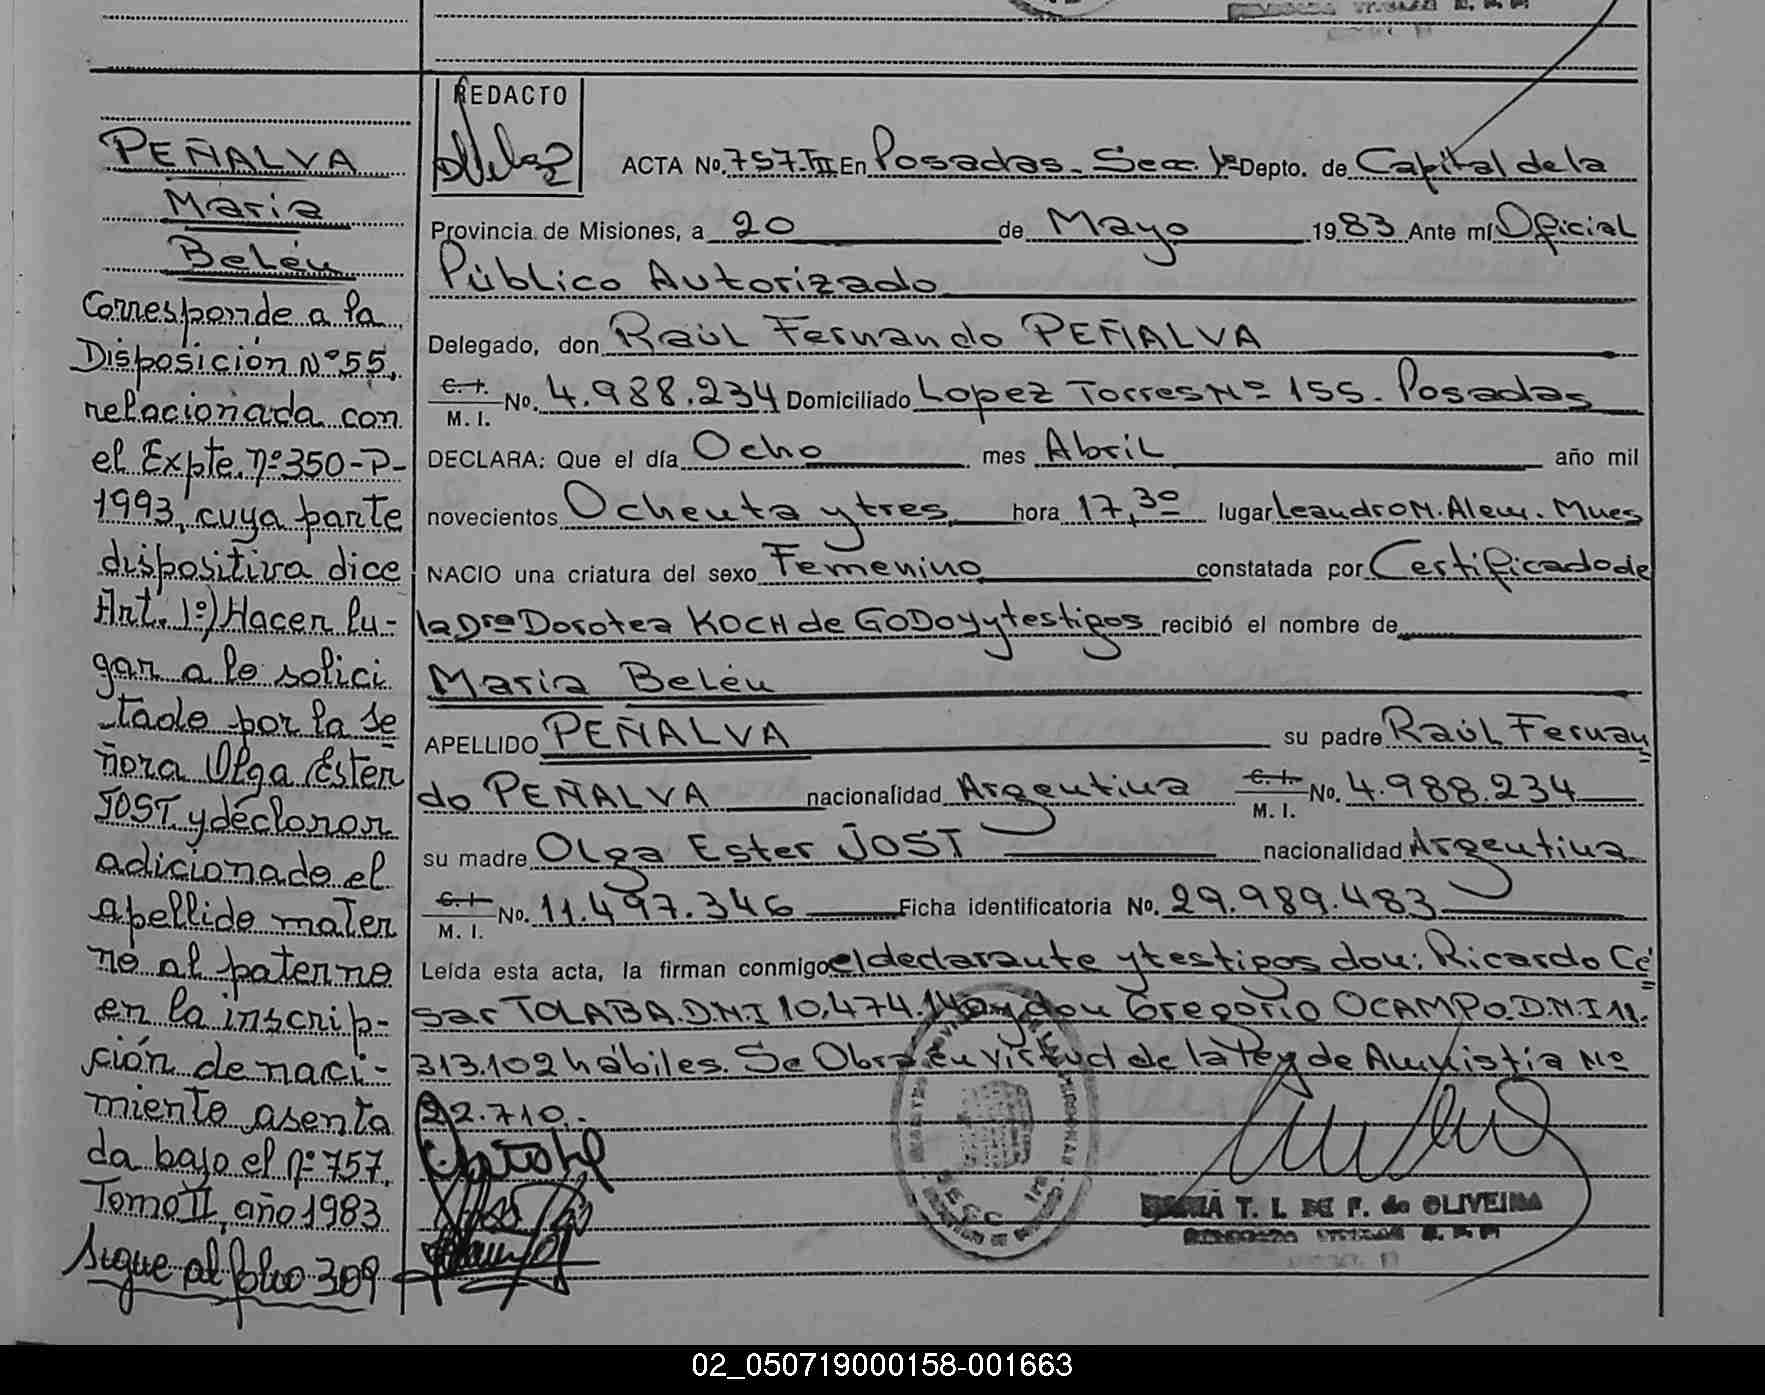 PEÑALVA
Maria
Belén
Corresponde a la
Disposición Nº 55,
relacionada con
el Expte. nº 350-P-
1993, cuya parte
dispositiva dice
Art. 1º) Hacer lu-
gar a lo solici
tado por la Se
ñora Olga Ester
JOST y declarar
adicionado el
apellido mater
no al paterno
en la inscrip-
ción de naci-
miento asenta
da bajo el nº 757,
Tomo II, año 1983
Sigue al folio 309
REDACTO
ACTA No. 757-III En Posadas - Secc. 1ª Depto. de Capital de la
Provincia de Misiones, a 20 de Mayo 1983 Ante mí Oficial
Público Autorizado
Delegado, don Raúl Fernando PEÑALVA
C. I. M. I. No. 4.988.234 Domiciliado Lopez Torres Nº 155 - Posadas
DECLARA: Que el día Ocho mes Abril año mil
novecientos Ochenta y tres hora 17,30 lugar Leandro N. Alem - Mnes
NACIO una criatura del sexo Femenino constatada por Certificado de
la Drª Dorotea KOCH de GODOY y testigos recibió el nombre de
Maria Belén
APELLIDO PEÑALVA su padre Raúl Fernan
do PEÑALVA nacionalidad Argentina C. I. M. I. No. 4.988.234
su madre Olga Ester JOST nacionalidad Argentina
C. I. M. I. No. 11.497.346 Ficha identificatoria No. 29.989.483
Leída esta acta, la firman conmigo el declarante y testigos don: Ricardo Cé
sar TOLABA.D.N.I 10.474.140 y don Gregorio OCAMPO.D.N.I 11.
313.102 hábiles. Se Obra en virtud de la Ley de Amnistía Nº
22.710.-
MARÍA T. L. DE F. de OLIVEIRA
02_050719000158-001663